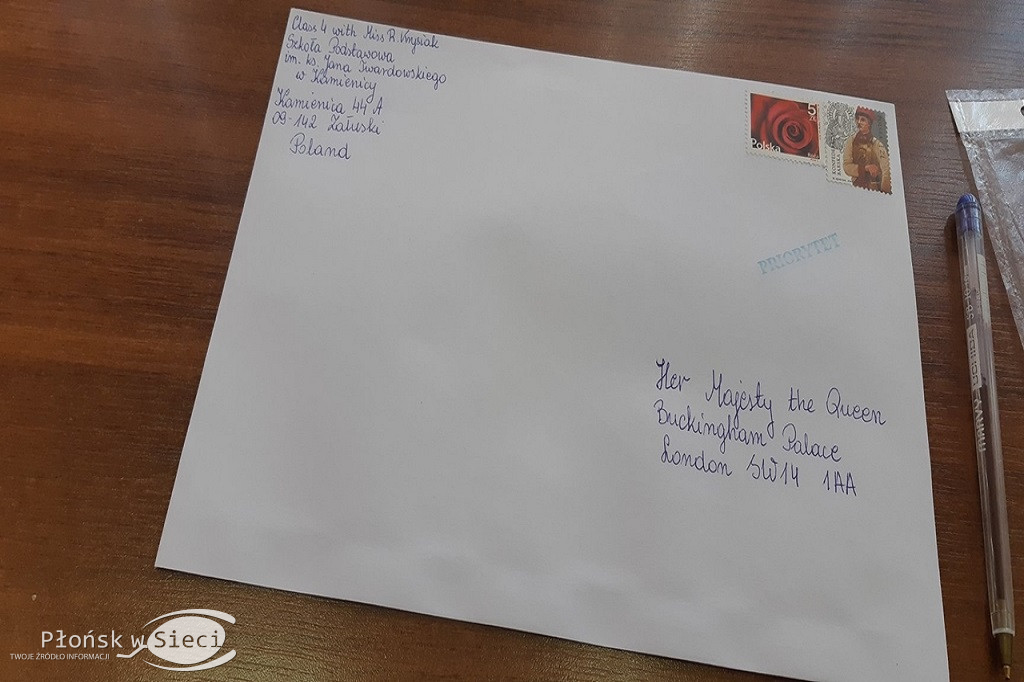 Class 4 with Miss R. Wrysiak
Szkoła Podstawowa
im. ks. Jana Twardowskiego
w Kamienicy
Kamienica 44 A
09-142 Załuski
Poland
5
Polska
PRIORYTET
Her Majesty the Queen
Buckingham Palace
London SW14 1AA
UCHIDA
Płońsk w Sieci
TWOJE ŹRÓDŁO INFORMACJI